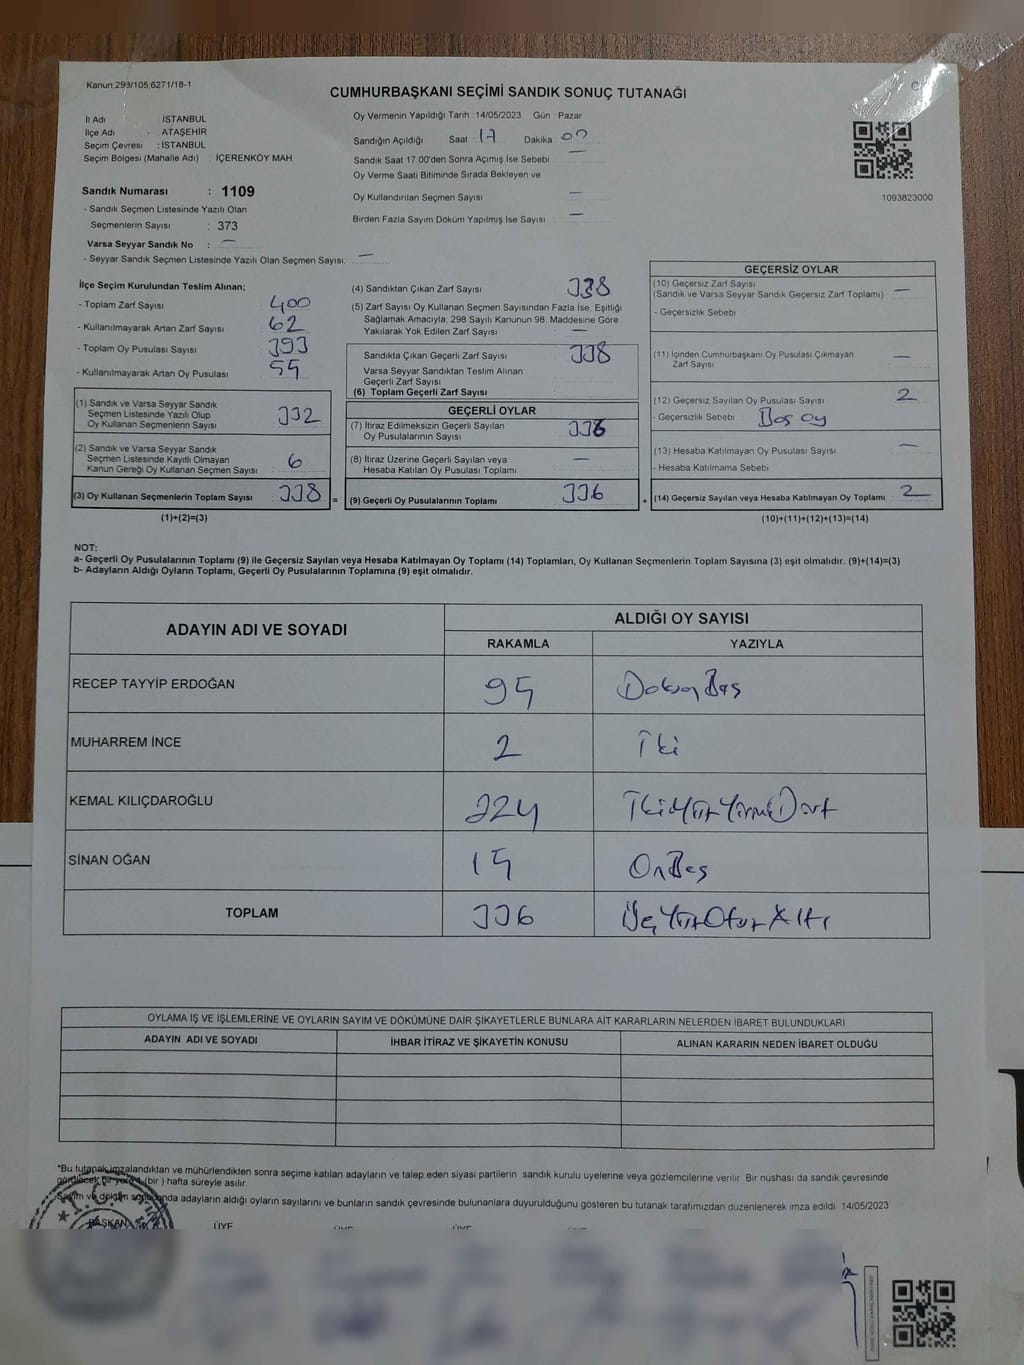 Kanun:293/105,6271/18-1
CUMHURBAŞKANI SEÇİMİ SANDIK SONUÇ TUTANAĞI
İl Adı : İSTANBUL
İlçe Adı : ATAŞEHİR
Seçim Çevresi : İSTANBUL
Seçim Bölgesi (Mahalle Adı) : İÇERENKÖY MAH.
Sandık Numarası : 1109
- Sandık Seçmen Listesinde Yazılı Olan
Seçmenlerin Sayısı : 373
Varsa Seyyar Sandık No : —
- Seyyar Sandık Seçmen Listesinde Yazılı Olan Seçmen Sayısı: —
Oy Vermenin Yapıldığı Tarih :14/05/2023 Gün : Pazar
Sandığın Açıldığı Saat 17 Dakika 00
Sandık Saat 17.00'den Sonra Açımış İse Sebebi —
Oy Verme Saati Bitiminde Sırada Bekleyen ve
Oy Kullandırılan Seçmen Sayısı —
Birden Fazla Sayım Döküm Yapılmış İse Sayısı —
1093823000
İlçe Seçim Kurulundan Teslim Alınan;
- Toplam Zarf Sayısı 400
- Kullanılmayarak Artan Zarf Sayısı 62
- Toplam Oy Pusulası Sayısı 393
- Kullanılmayarak Artan Oy Pusulası 55
(1) Sandık ve Varsa Seyyar Sandık
Seçmen Listesinde Yazılı Olup
Oy Kullanan Seçmenlerin Sayısı 332
(2) Sandık ve Varsa Seyyar Sandık
Seçmen Listesinde Kayıtlı Olmayan
Kanun Gereği Oy Kullanan Seçmen Sayısı 6
(3) Oy Kullanan Seçmenlerin Toplam Sayısı 338 =
(1)+(2)=(3)
(4) Sandıktan Çıkan Zarf Sayısı 338
(5) Zarf Sayısı Oy Kullanan Seçmen Sayısından Fazla İse, Eşitliği
Sağlamak Amacıyla, 298 Sayılı Kanunun 98. Maddesine Göre
Yakılarak Yok Edilen Zarf Sayısı —
Sandıkta Çıkan Geçerli Zarf Sayısı 338
Varsa Seyyar Sandıktan Teslim Alınan
Geçerli Zarf Sayısı
(6) Toplam Geçerli Zarf Sayısı
GEÇERLİ OYLAR
(7) İtiraz Edilmeksizin Geçerli Sayılan
Oy Pusulalarının Sayısı 336
(8) İtiraz Üzerine Geçerli Sayılan veya
Hesaba Katılan Oy Pusulası Toplamı —
(9) Geçerli Oy Pusulalarının Toplamı 336 +
GEÇERSİZ OYLAR
(10) Geçersiz Zarf Sayısı
(Sandık ve Varsa Seyyar Sandık Geçersiz Zarf Toplamı) —
- Geçersizlik Sebebi
(11) İçinden Cumhurbaşkanı Oy Pusulası Çıkmayan
Zarf Sayısı —
(12) Geçersiz Sayılan Oy Pusulası Sayısı 2
- Geçersizlik Sebebi Boş oy
(13) Hesaba Katılmayan Oy Pusulası Sayısı —
- Hesaba Katılmama Sebebi
(14) Geçersiz Sayılan veya Hesaba Katılmayan Oy Toplamı 2
(10)+(11)+(12)+(13)=(14)
NOT:
a- Geçerli Oy Pusulalarının Toplamı (9) ile Geçersiz Sayılan veya Hesaba Katılmayan Oy Toplamı (14) Toplamları, Oy Kullanan Seçmenlerin Toplam Sayısına (3) eşit olmalıdır. (9)+(14)=(3)
b- Adayların Aldığı Oyların Toplamı, Geçerli Oy Pusulalarının Toplamına (9) eşit olmalıdır.
ADAYIN ADI VE SOYADI ALDIĞI OY SAYISI
RAKAMLA YAZIYLA
RECEP TAYYİP ERDOĞAN 95 DoksanBeş
MUHARREM İNCE 2 İki
KEMAL KILIÇDAROĞLU 224 İkiYüzYirmiDört
SİNAN OĞAN 15 OnBeş
TOPLAM 336 ÜçYüzOtuzAltı
OYLAMA İŞ VE İŞLEMLERİNE VE OYLARIN SAYIM VE DÖKÜMÜNE DAİR ŞİKAYETLERLE BUNLARA AİT KARARLARIN NELERDEN İBARET BULUNDUKLARI
ADAYIN ADI VE SOYADI İHBAR İTİRAZ VE ŞİKAYETİN KONUSU ALINAN KARARIN NEDEN İBARET OLDUĞU
*Bu tutanak imzalandıktan ve mühürlendikten sonra seçime katılan adayların ve talep eden siyasi partilerin sandık kurulu üyelerine veya gözlemcilerine verilir. Bir nüshası da sandık çevresinde
görülecek bir yere 1 (bir ) hafta süreyle asılır.
Sayım ve döküm sonucunda adayların aldığı oyların sayılarını ve bunların sandık çevresinde bulunanlara duyurulduğunu gösteren bu tutanak tarafımızdan düzenlenerek imza edildi. 14/05/2023
T.C.
BAŞKAN ÜYE ÜYE ÜYE